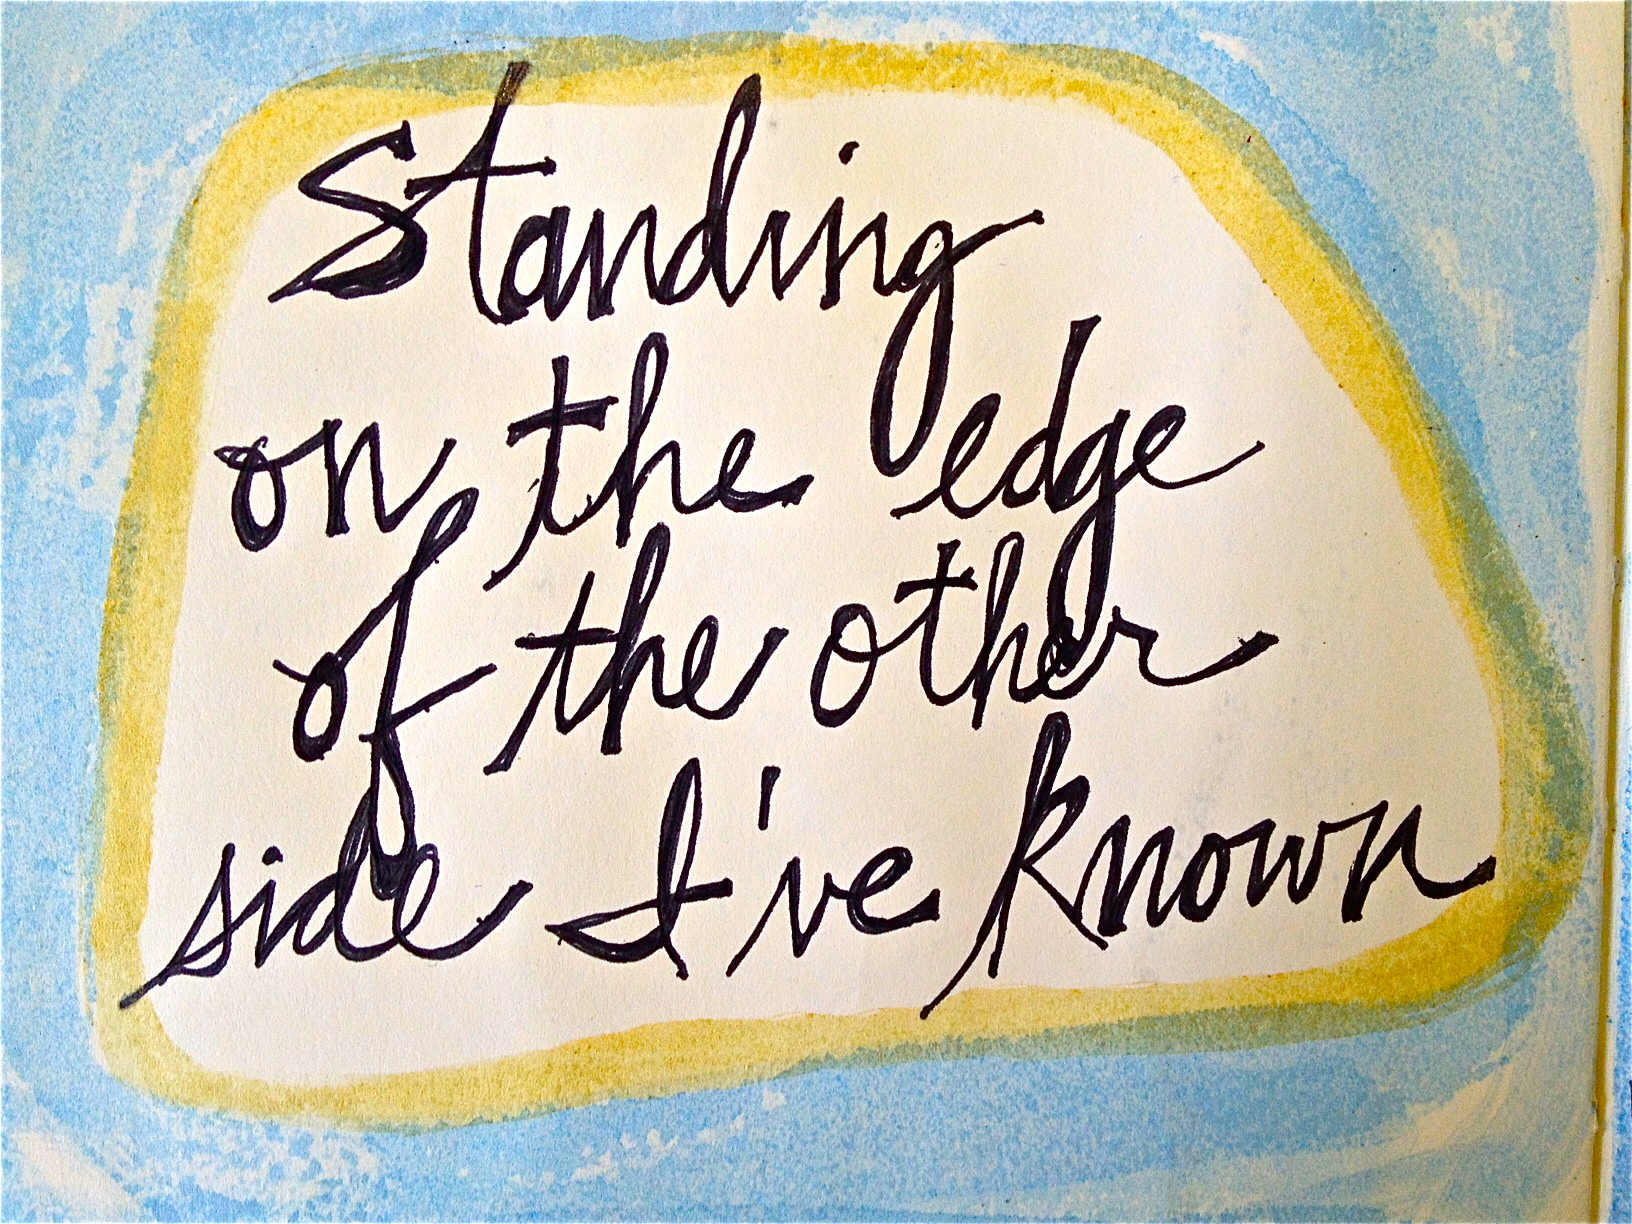 Standing
on the edge
of the other
side I've known